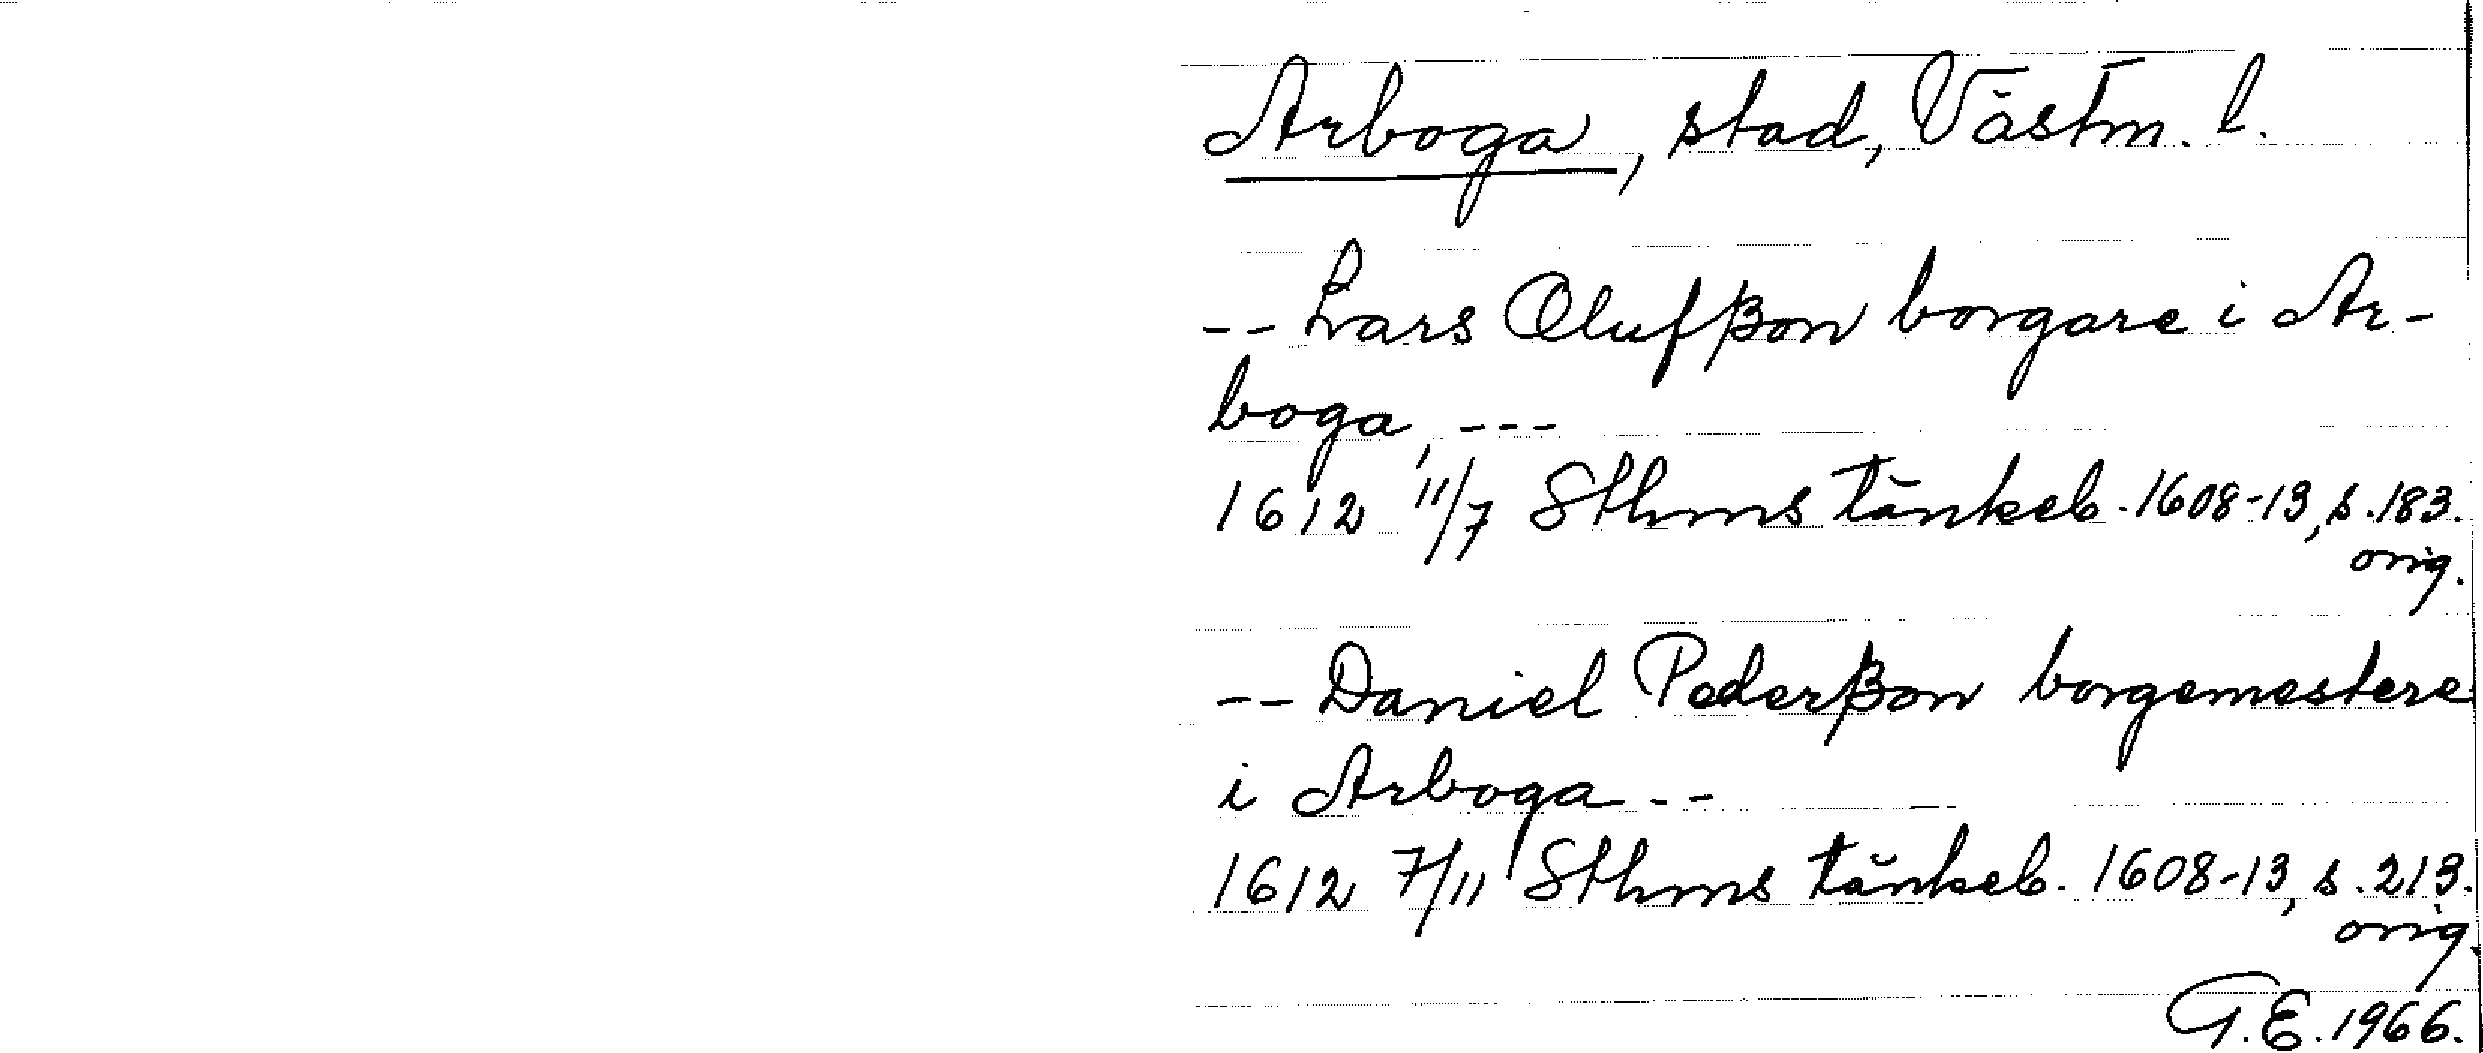 Arboga, stad, Västm. l.
-- Lars Olufßon borgare i Ar-
boga, ---
1612 11/7 Sthms tänkeb. 1608-13, s. 183.
orig.
-- Daniel Pederßon borgemestere
i Arboga --
1612 7/11 Sthms tänkeb. 1608-13, s. 213.
orig.
G.E. 1966.